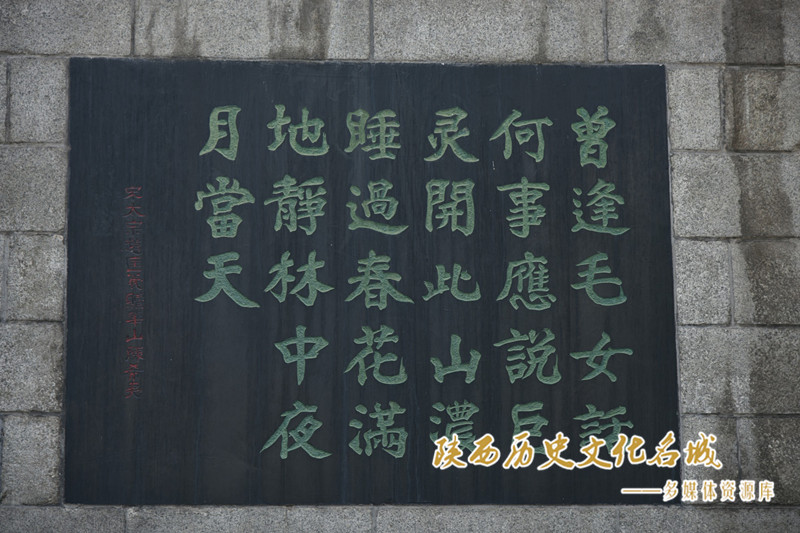 曾逢毛女話
何事應説巨
灵開此山濃
睡過春花滿
地靜林中夜
月當天
陕西历史文化名城
——多媒体资源库